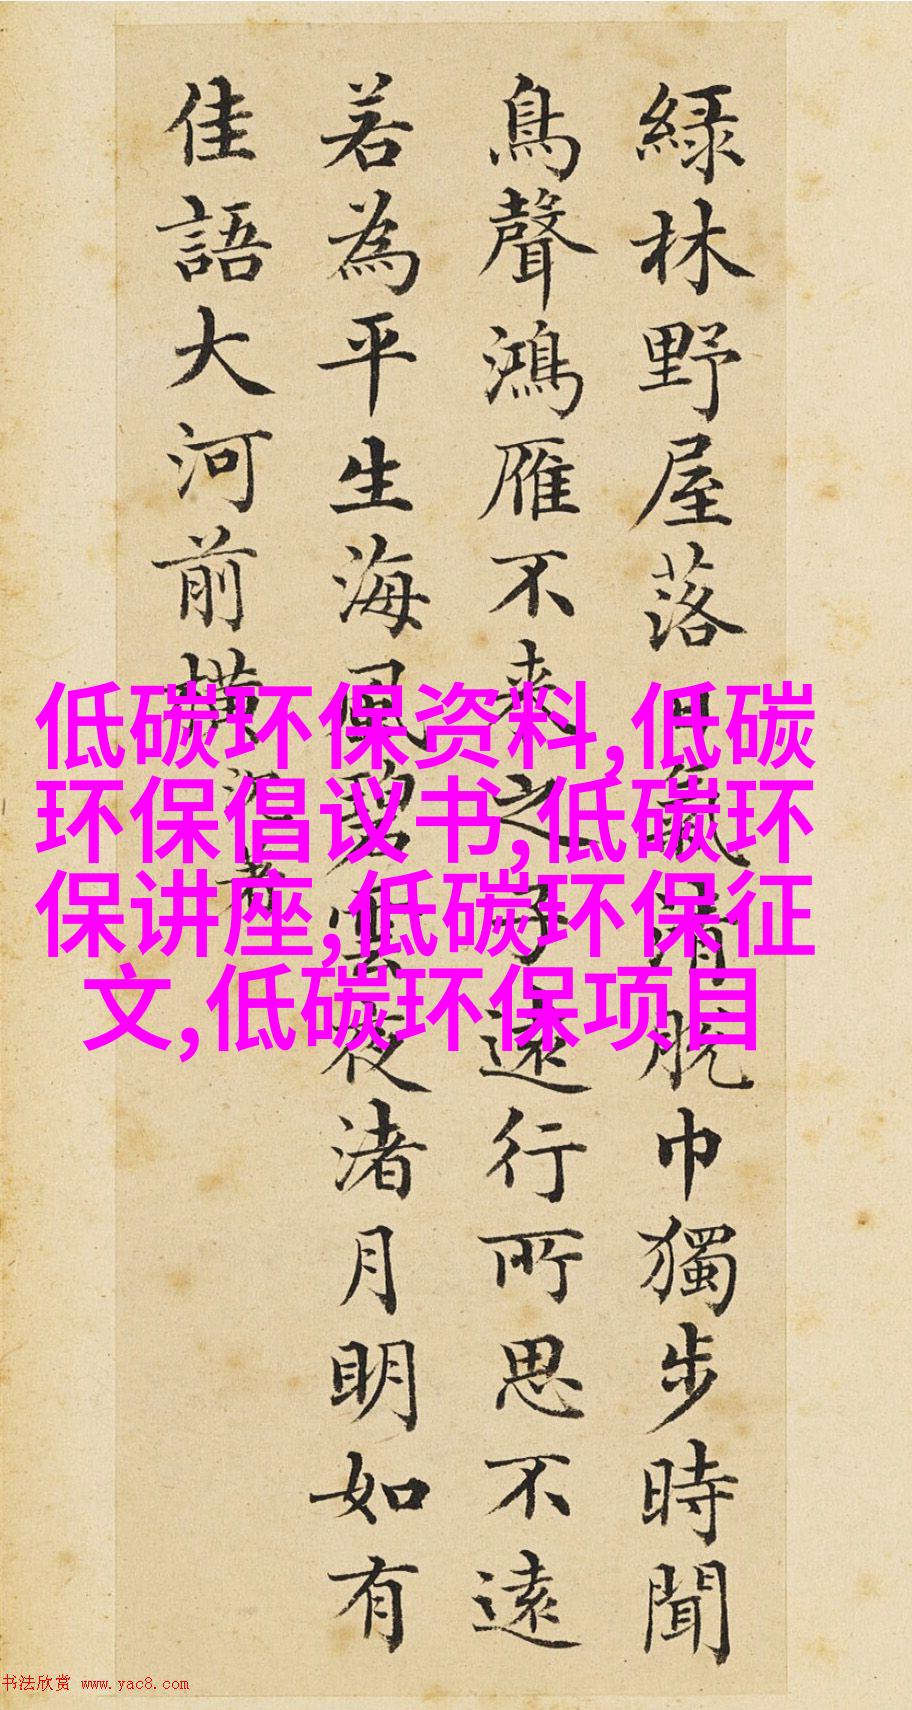 綠林野屋落日氣清脫巾獨步時聞
鳥聲鴻雁不來之子遠行所思不遠
若為平生海風碧雲夜渚月明如有
佳語大河前橫
沉著
低碳环保资料,低碳
环保倡议书,低碳环
保讲座,低碳环保征
文,低碳环保项目
书法欣赏 www.yac8.com